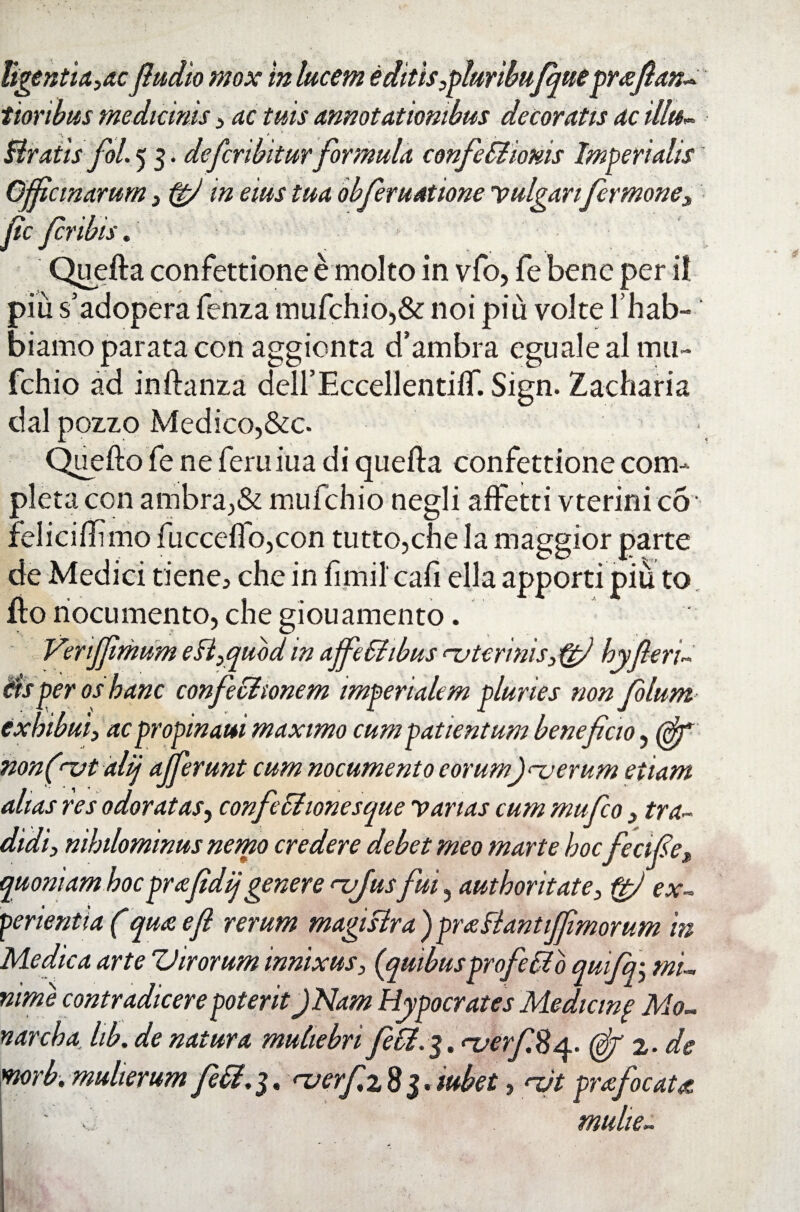 ligentia,ac ſtudio mox in lucem editis,pluribuſque præſtan-
tioribus medicinis, ac tuis annotationibus decoratis ac illu-
ſtratis fol. 5 3. deſcribitur formula confectionis Imperialis
Officinarum, & in eius tua obſeruatione vulgari ſermone,
ſic ſcribis.
Queſta confettione è molto in vſo, ſe bene per il
più s'adopera ſenza muſchio,& noi più volte l'hab-
biamo parata con aggionta d'ambra eguale al mu-
ſchio ad inſtanza dell'Eccellentiſſ. Sign. Zacharia
dal pozzo Medico,&c.
Queſto ſe ne ſeruiua di queſta confettione com-
pleta con ambra,& muſchio negli affetti vterini cō
feliciſſimo ſucceſſo,con tutto,che la maggior parte
de Medici tiene, che in ſimil caſi ella apporti più to
ſto nocumento, che giouamento.
Veriſſimum eſt,quòd in affectibus vterinis,& hyſteri-
cis per os hanc confectionem imperialem pluries non ſolum
exhibui, ac propinaui maximo cum patientum beneficio, &
non(vt alij aſſerunt cum nocumento eorum) verum etiam
alias res odoratas, confectionesque varias cum muſco, tra-
didi, nihilominus nemo credere debet meo marte hoc feciſſe,
quoniam hoc præſidij genere vſus fui, authoritate, & ex-
perientia (quæ eſt rerum magiſtra) præſtantiſſimorum in
Medica arte Virorum innixus, (quibus profectò quiſq; mi-
nimè contradicere poterit) Nam Hypocrates Medicinę Mo-
narcha lib. de natura muliebri ſect. 3. verſ.84. & 2. de
morb. mulierum ſect. 3. verſ.2 8 3. iubet, vt præfocatæ
mulie-